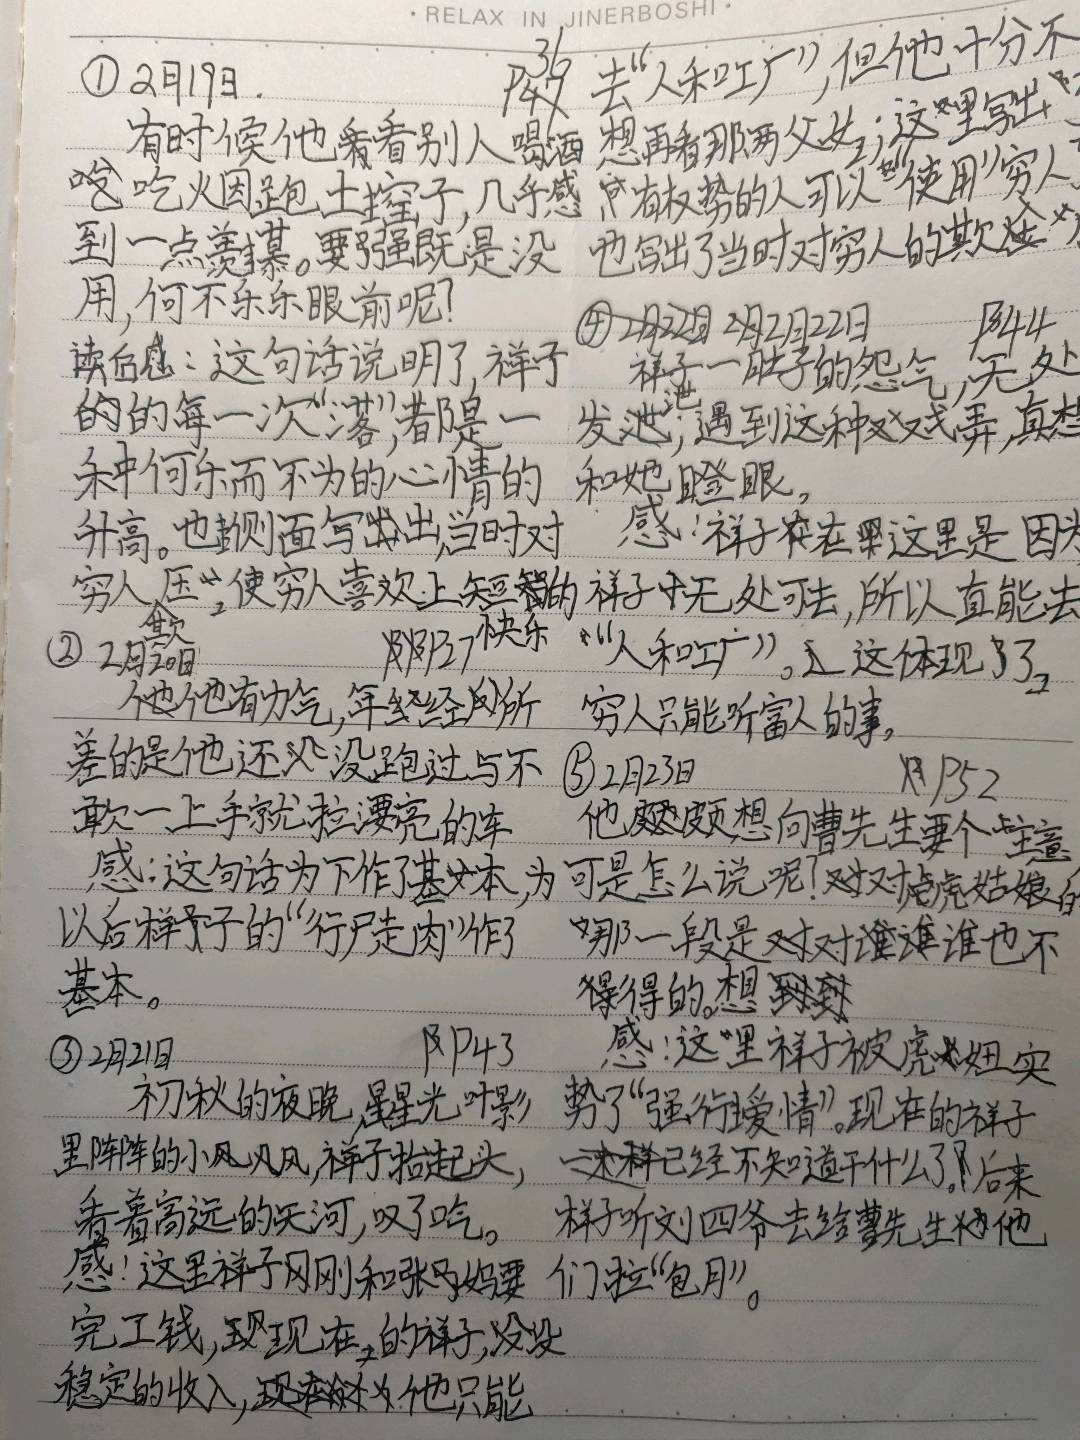 · RELAX IN JINERBOSHI ·
①2月19日. P36
有时候他看看别人喝酒
吃吃火因跑土窑子,几乎感
到一点羡慕。要强既是没
用,何不乐乐眼前呢?
读后感:这句话说明了,祥子
的的每一次“落”,都是一
种何乐而不为的心情的
升高。也侧面写出出,当时对
穷人压欺,使穷人喜欢上短暂的
快乐
②2月20日 P37
他他有力气,年经所
差的是他还没跑过与不
敢一上手就拉漂亮的车
感:这句话为下作了基本,为
以后祥子的“行尸走肉”作了
基本。
③2月21日 P43
初秋的夜晚,星星光叶影
里阵阵的小风风,祥子抬起头,
看着高远的天河,叹了口气。
感!这里祥子刚刚和张妈要
完工钱,现现在,的祥子,没
稳定的收入,他只能
去“人和工厂”,但他十分不
想再看那两父女;这里写出
有权势的人可以“使用”穷人
也写出了当时对穷人的欺
④2月22日 P44
祥子一肚子的怨气,无处
发泄;遇到这种戏弄,真想
和她瞪眼。
感!祥子在这里是因为
祥子无处可去,所以直能去
“人和工厂”。这体现了,
穷人只能听富人的事。
⑤2月23日 P52
他颇想向曹先生要个主意
可是怎么说呢?对虎姑娘的
那一段是对对谁谁也不
得的。想到
感!这里祥子被虎妞实
势了“强行爱情”。现在的祥子
已经不知道干什么了。后来
祥子听刘四爷去给曹先生他
们拉“包月”。